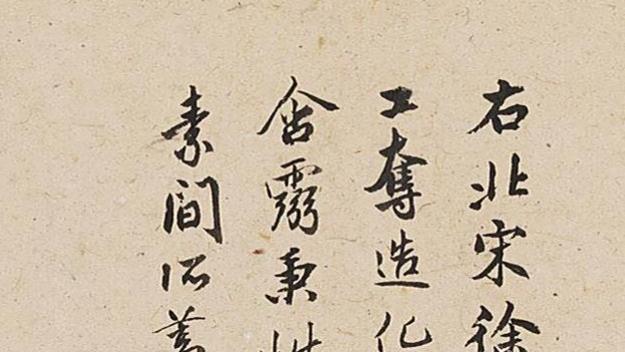 右北宋徐
工奪造化
含秉性
素間所